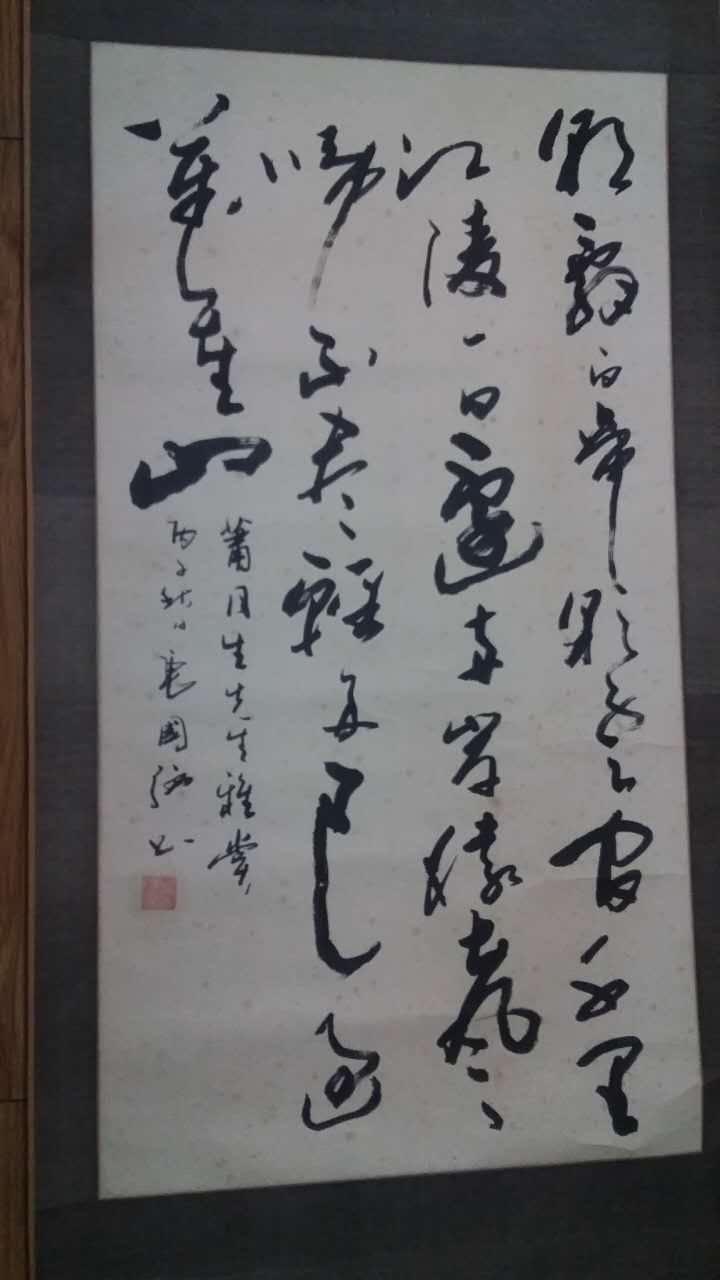 朝辭白帝彩雲間千里
江陵一日還兩岸猿聲
啼不盡輕舟已過
萬重山
蕭月生先生雅賞
丙子秋日國書